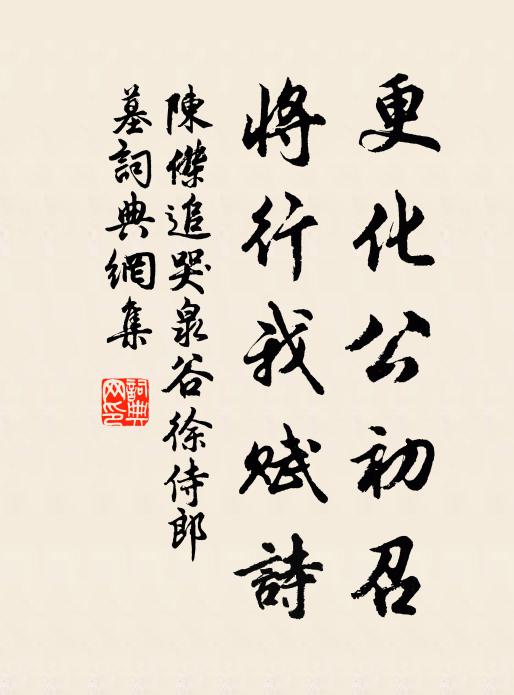 更化公初召
將行我賦詩
陳傑追哭泉谷徐侍郎
墓詞典網集
詞典網印